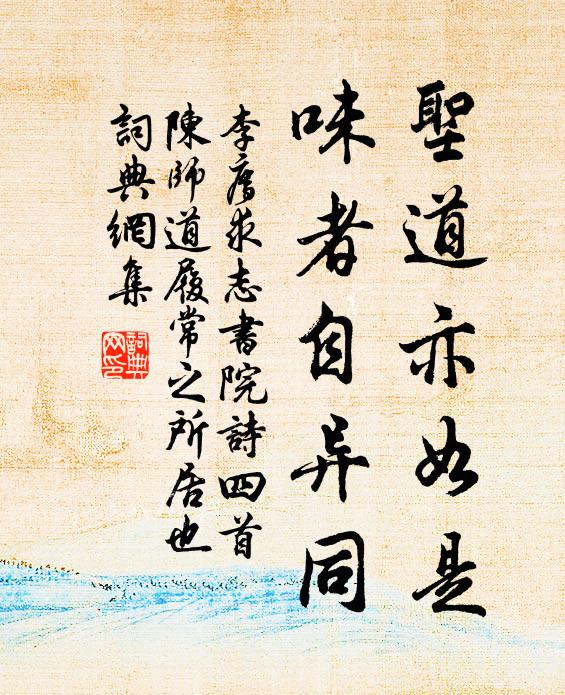 聖道亦如是
味者自异同
李廌求志書院詩四首
陳師道履常之所居也
詞典網集
詞典网印